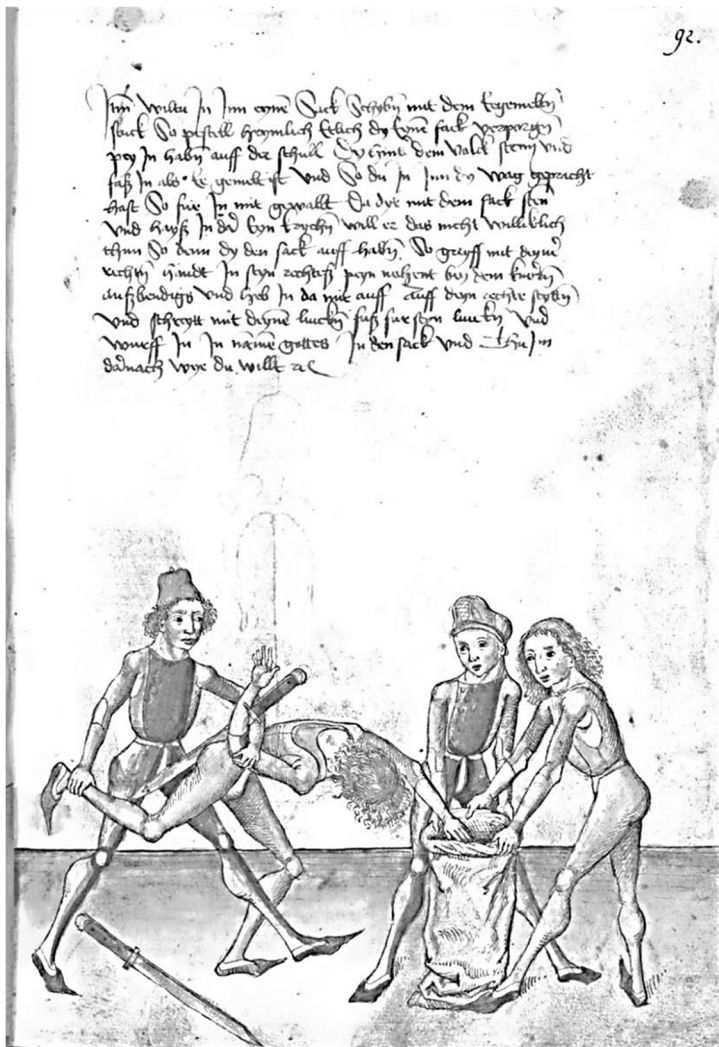 92.
Item wiltu In Inn eynē Sack Schybñ mit dem
stuck So pestell heymlich Etlich dy eynē sack verporgeñ
pey In habñ auff der schull Dy hint dem volck steen vnd
faß In als ee gemelt ist Vnd So du In Inn dy wag gepracht
hast So fur In mit gewallt Da dye mit dem sack sten
Vnd hayß In dar Eyn krychñ will er das nicht williklich
thun So denn dy den sack auff habñ So greyff mit deyner
rechtñ hindt In seyn rechtess peyn nahent bey dem
außbendigs Vnd heb In da mit auff Auff deyn rechte seyttñ
Vnd schreytt mit deynē linckñ fuß fur seyn linckñ Vnd
wurff In In name gottes In den sack Vnd Thu Im
darnach wye du willt